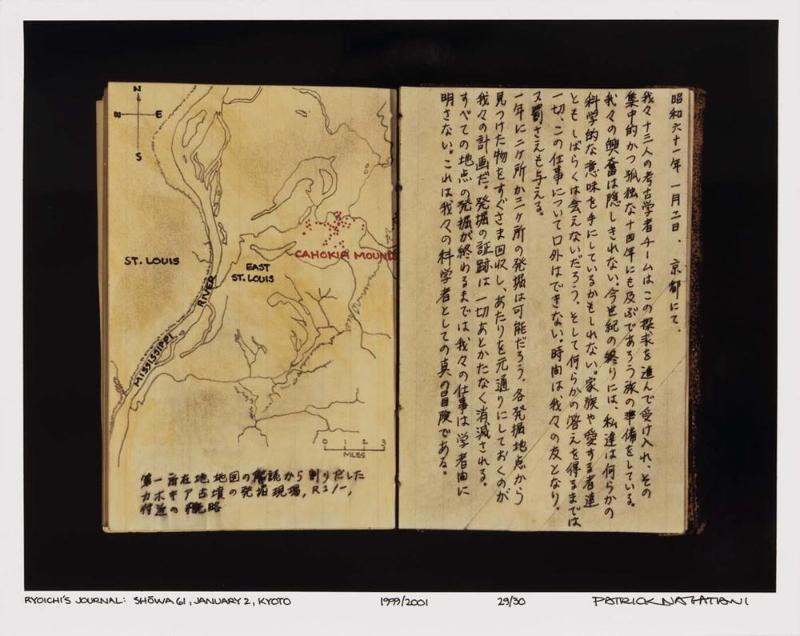 N
W E
S
ST. LOUIS
EAST
ST. LOUIS
CAHOKIA MOUND
RIVER
MISSISSIPPI
0 1 2 3
MILES
第一所在地地図の解読から割りだした
カホキア古墳の発掘現場,
付近の概略
昭和六十一年 一月二日、京都にて、
我々十三人の考古学者チームはこの探求を進んで受け入れ、その
集中的かつ孤独な十四年にも及ぶであろう旅の準備をしている。
我々の興奮は隠しきれない。今世紀の終りには、私達は何らかの
科学的な意味を手にしているかもしれない。家族や愛する者達
ともしばらくは会えないだろう、そして何らかの答えを得るまでは
一切、この仕事について口外はできない。時間は、我々の友となり、
又罰さえも与える。
一年に二ヶ所か三ヶ所の発掘は可能だろう、各発掘地点から
見つけた物をすぐさま回収し、あたりを元通りにしておくのが
我々の計画だ。発掘の証跡は一切あとかたなく消滅される。
すべての地点の発掘が終わるまでは我々の仕事は学者間に
明さない。これは我々の科学者としての真の冒険である。
RYOICHI'S JOURNAL: SHŌWA 61, JANUARY 2, KYOTO
1999/2001
29/30
PATRICK NAGATANI